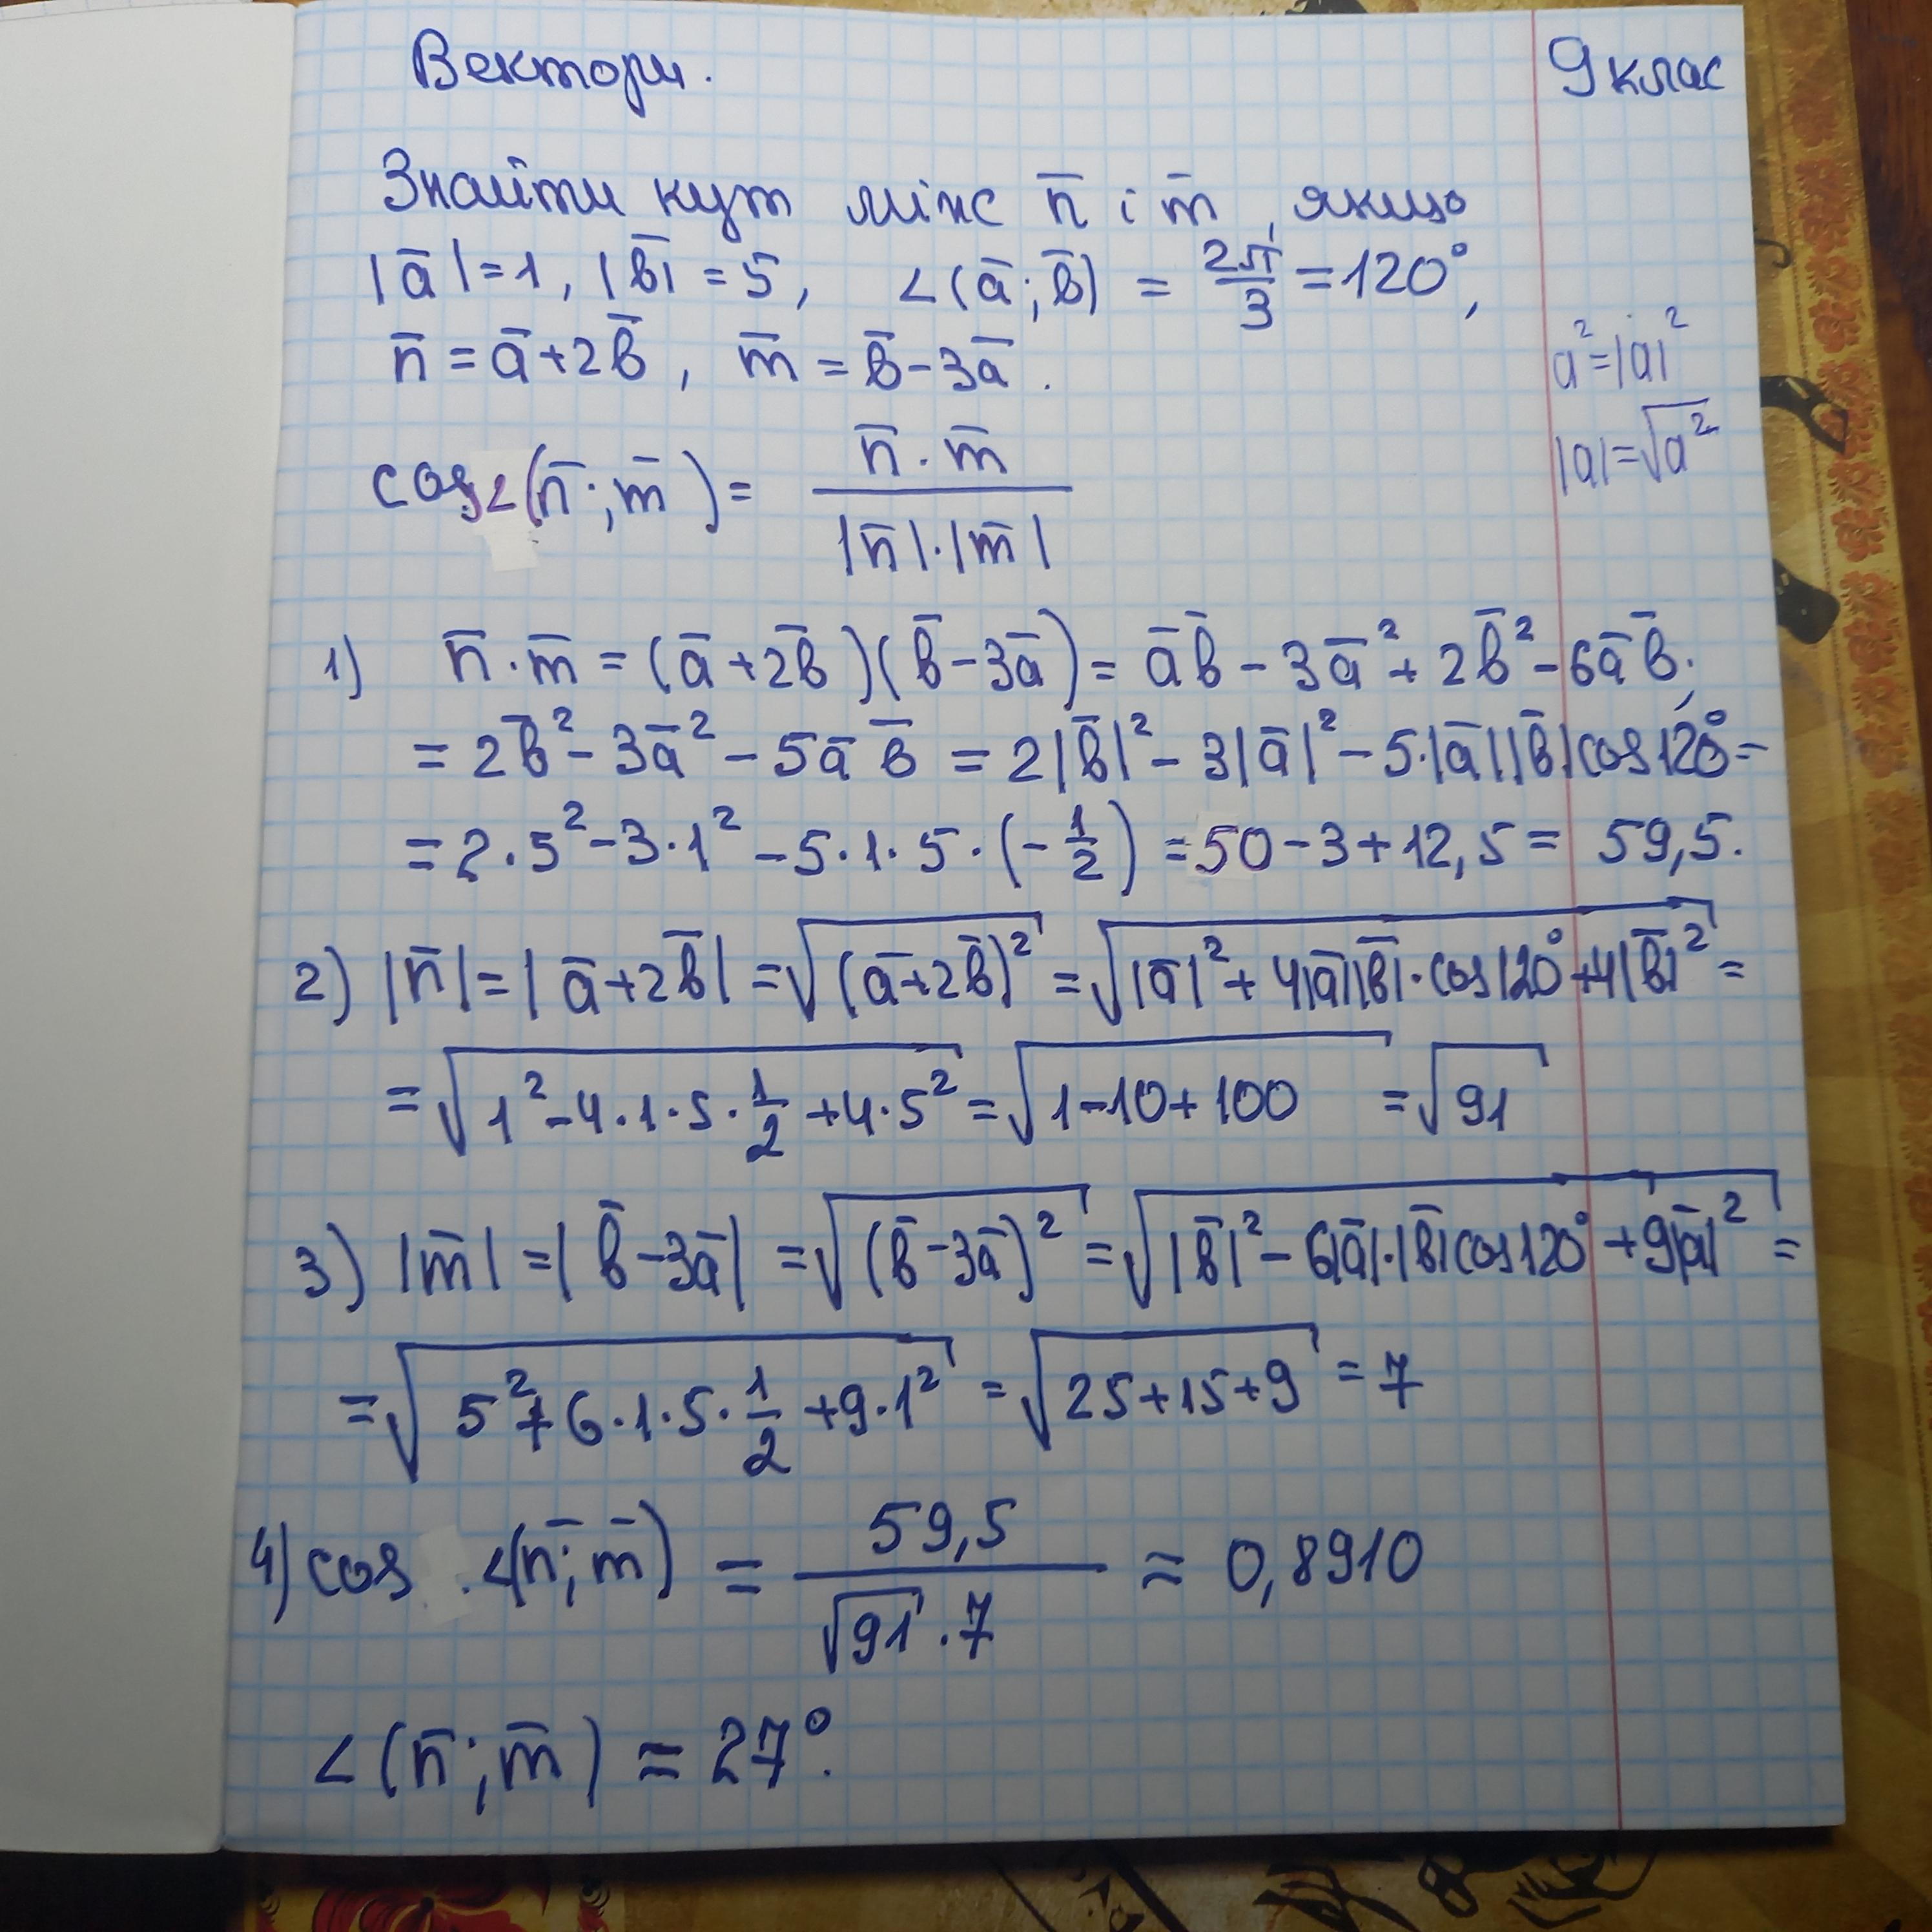 Вектори. 9 клас
Знайти кут між n̄ і m̄, якщо
|ā|=1, |b̄|=5, ∠(ā; b̄) = 2π/3 = 120°,
n̄ = ā+2b̄, m̄ = b̄-3ā.
a²=|a|²
|a|=√a²
cos∠(n̄; m̄)= n̄·m̄ / |n̄|·|m̄|
1) n̄·m̄ = (ā+2b̄)(b̄-3ā) = āb̄ - 3ā² + 2b̄² - 6āb̄;
= 2b̄² - 3ā² - 5āb̄ = 2|b̄|² - 3|ā|² - 5·|ā||b̄|cos120° =
= 2·5² - 3·1² - 5·1·5·(-1/2) = 50-3+12,5 = 59,5.
2) |n̄| = |ā+2b̄| = √(ā+2b̄)² = √|ā|²+4|ā||b̄|·cos120°+4|b̄|² =
= √1²-4·1·5·1/2+4·5² = √1-10+100 = √91
3) |m̄| = |b̄-3ā| = √(b̄-3ā)² = √|b̄|²-6|ā|·|b̄|cos120°+9|ā|² =
= √5²+6·1·5·1/2+9·1² = √25+15+9 = 7
4) cos ∠(n̄; m̄) = 59,5 / √91·7 ≈ 0,8910
∠(n̄; m̄) ≈ 27°.